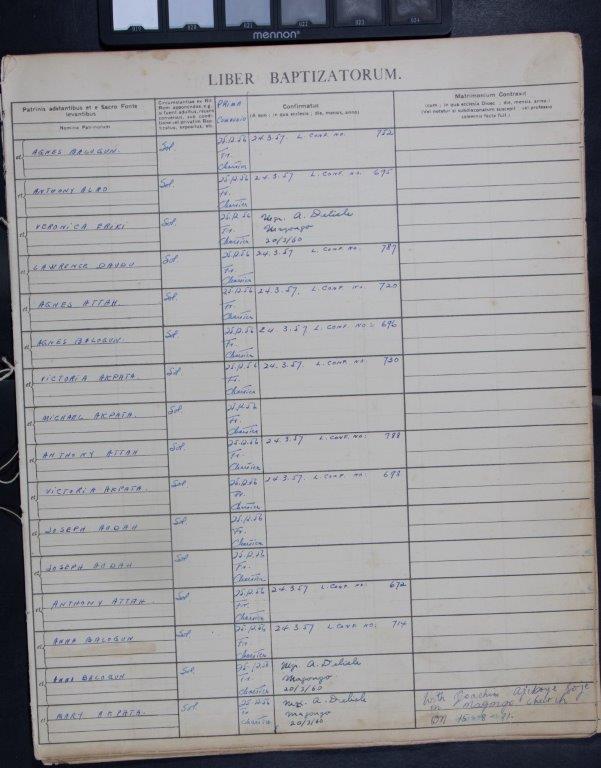 019 020 021 022 023 024
mennon®
LIBER BAPTIZATORUM.
Patrinis adstantibus et e Sacro Fonte levantibus
Nomina Patrinorum
PRIMA COMMUNIO
Confirmatus
(A quo; in qua ecclesia; die, mensis, anno)
Matrimonium Contraxit
(cum; in qua ecclesia Dioec; die, mensis, anno.)
(Vel notetur si subdiaconatum suscepit vel professio solemnis facta fuit.)
et AGNES BALOGUN. Sol. 25.12.56 24.3.57. L. CONF. NO. 752
Fr.
et ANTHONY Sol. 25.12.56 24.3.57. L. CONF. NO. 695
Fr.
et VERONICA Sol. 25.12.56 Mgr. A. Delisle
Fr. Magongo
20/3/60
et LAWRENCE DAUDU Sol. 25.12.56 24.3.57 L. CONF. NO. 787
Fr.
et AGNES ATTAH. Sol. 25.12.56 24.3.57. L. CONF. NO. 720
Fr.
et AGNES BALOGUN. Sol. 25.12.56 24.3.57. L. CONF. NO: 696
Fr.
et VICTORIA AKPATA. Sol. 25.12.56 24.3.57. L. CONF. NO. 730
Fr.
et MICHAEL AKPATA. Sol. 25.12.56
Fr.
et ANTHONY ATTAH Sol. 25.12.56 24.3.57 L. CONF. NO: 788
Fr.
et VICTORIA AKPATA. Sol. 25.12.56 24.3.57. L. CONF. NO: 698
Fr.
et JOSEPH AUDAH Sol. 25.12.56
Fr.
et JOSEPH AUDAH Sol. 25.12.56
Fr.
et ANTHONY ATTAH. Sol. 25.12.56 24.3.57 L. CONF. NO: 672
Fr.
et ANNA BALOGUN Sol. 25.12.56 24.3.57 L. CONF NO: 714
Fr.
et ANNA BALOGUN Sol. 25.12.56 Mgr. A. Delisle
Fr. Magongo
20/3/60
et MARY AKPATA. Sol. 25.12.56 Mgr. A. Delisle With Joachim
Fr. Magongo in Magongo church
20/3/60 On 15-8-91.